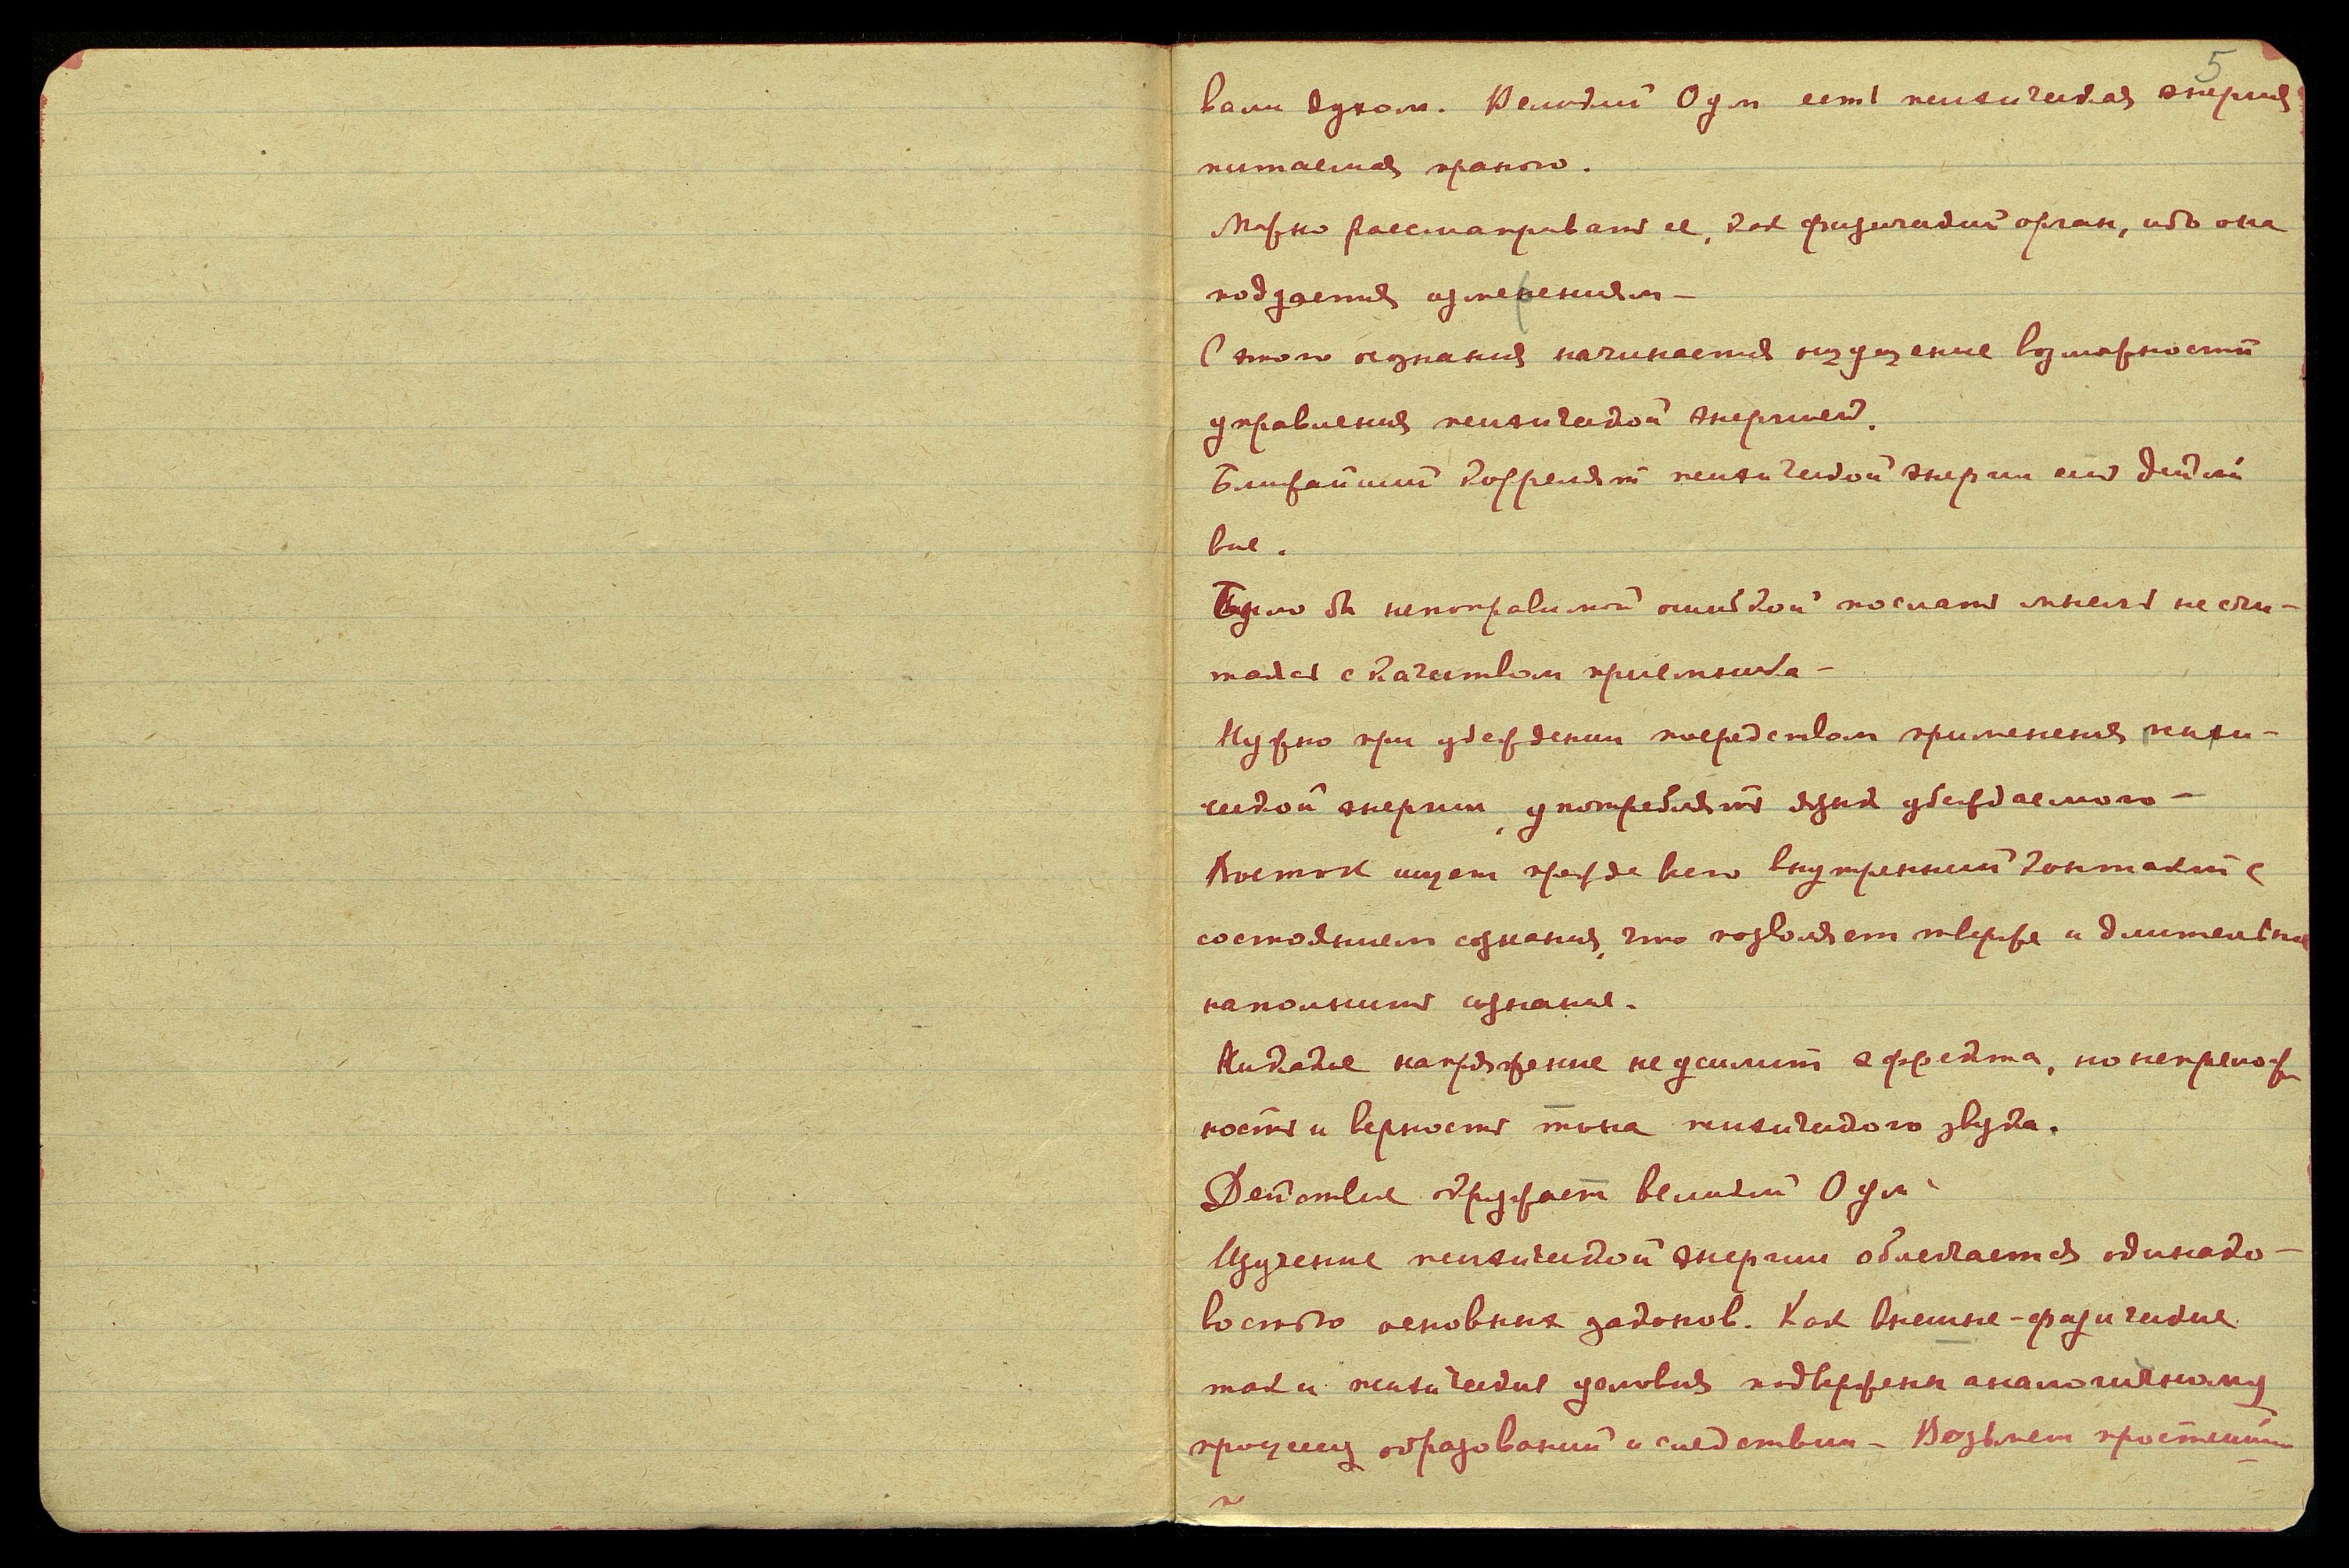 5
вами духом. Великий Оум есть психическая энергия
питаемая праною.
Можно рассматривать ее, как физический орган, ибо она
поддается изменениям –
С этого осознания начинается изучение возможностей
управления психической энергией.
Ближайший коррелят психической энергии есть дейст
вие.
Было бы непоправимой ошибкой послать мысль не счи-
таясь с качеством приемника –
Нужно при убеждении посредством применения психи-
ческой энергии, употреблять язык убеждаемого –
Восток ищет прежде всего внутренний контакт с
состоянием сознания, что позволяет тверже и длительнее
наполнить сознание.
Никакое напряжение не усилит эффекта, но непрелож
ность и верность тона психического звука.
Действие окружает великий Оум
Изучение психической энергии облегчается одинако-
востью основных законов. Как внешне-физические
так и психические условия подвержены аналогичному
процессу образований и следствий – Возьмем простейший